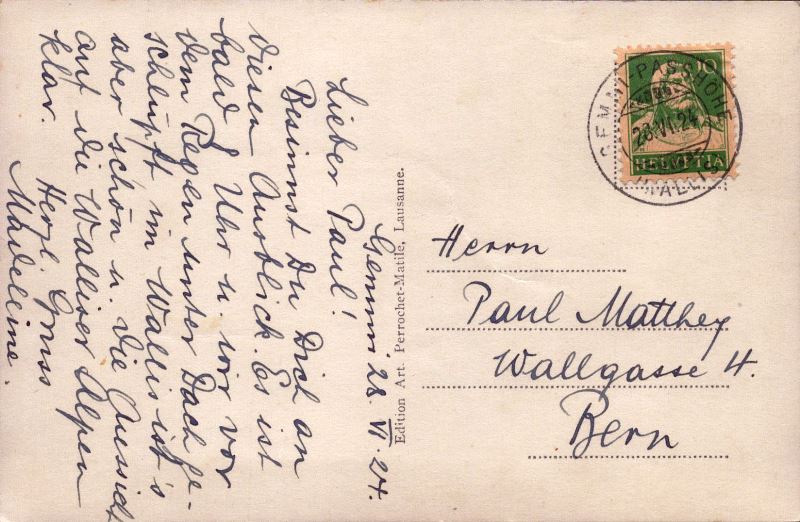 Gemmi 28. VI 24.
Lieber Paul!
Besinnst Du Dich an
diesen Ausblick. Es ist
bald Uhr u. wir vor
dem Regen unter Dach ge-
schlüpft im Wallis ist's
aber schön u. die Aussicht
auf die Walliser Alpen
klar. Herzl. Gruss
Madeleine.
Edition Art. Perrochet-Matile, Lausanne.
10
HELVETIA
GEMMI-PASSHÖHE
28.VI.24
(WALLIS)
Herrn
Paul Matthey
Wallgasse 4.
Bern